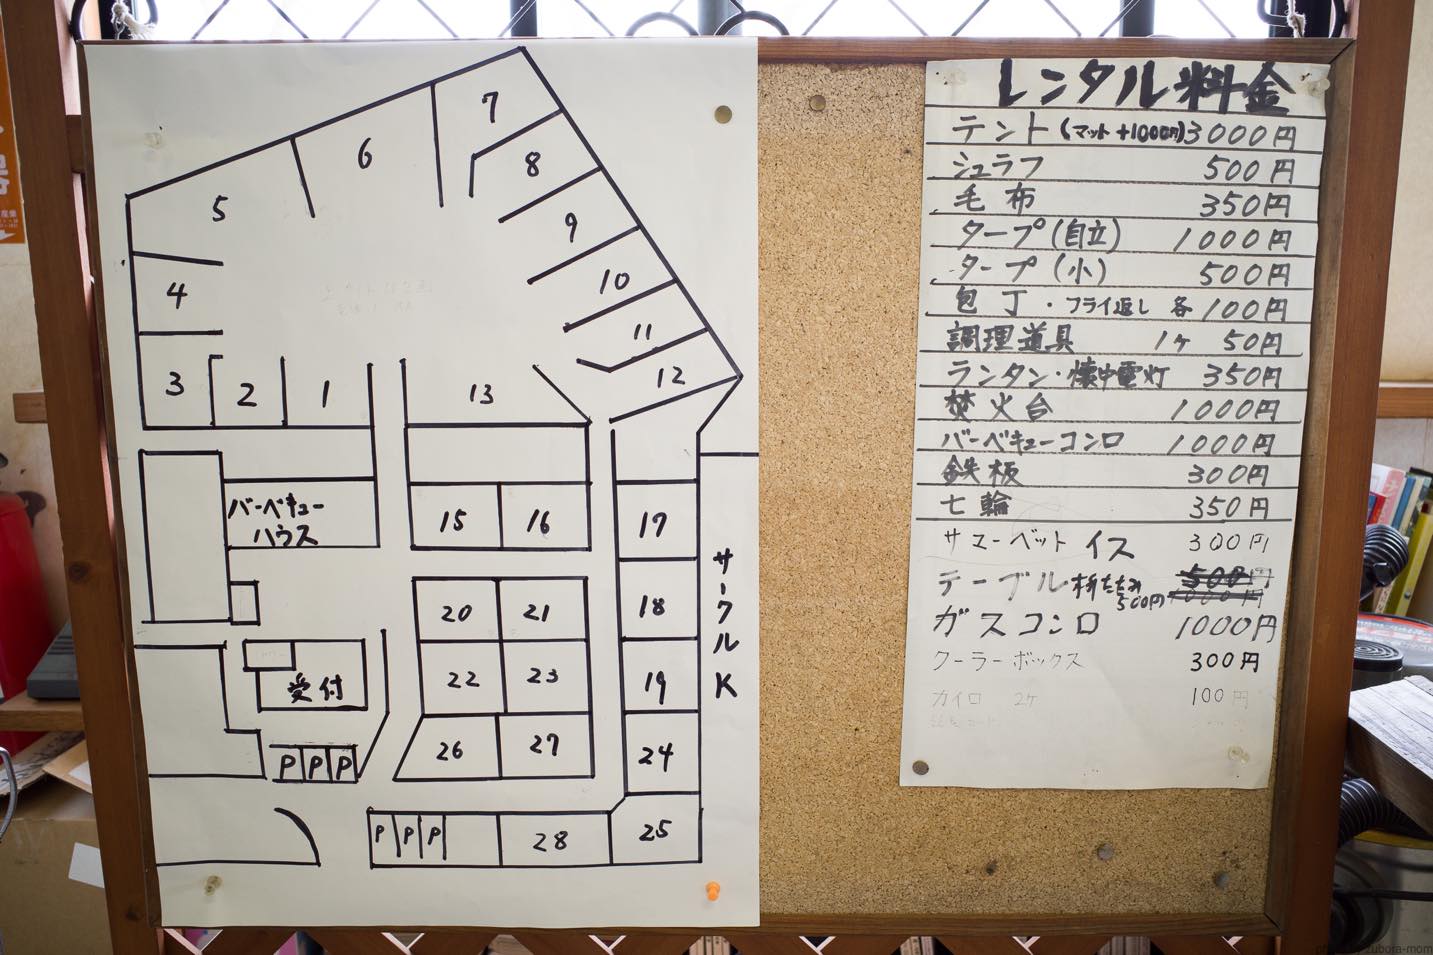 7
6
8
5
9
4
10
11
12
3
2
1
13
バーベキュー
ハウス
15
16
17
サークルK
20
21
18
22
23
19
受付
26
27
24
P P P
P P P
28
25
レンタル料金
テント(マット+1000円)3000円
シュラフ 500円
毛布 350円
タープ(自立) 1000円
タープ(小) 500円
包丁・フライ返し 各100円
調理道具 1ヶ 50円
ランタン・懐中電灯 350円
焚火台 1000円
バーベキューコンロ 1000円
鉄板 300円
七輪 350円
サマーベット イス 300円
テーブル 折たたみ 500円
500円
ガスコンロ 1000円
クーラーボックス 300円
カイロ 2ヶ 100円